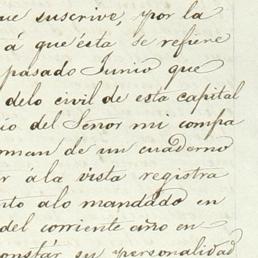 que suscrive, por la
á que ésta se refiere
pasado Junio que
delo civil de esta capital
io del Señor mi compa
orman de un cuaderno
r á la vista registra
nto alo mandado en
del corriente año en
onstar su personalidad